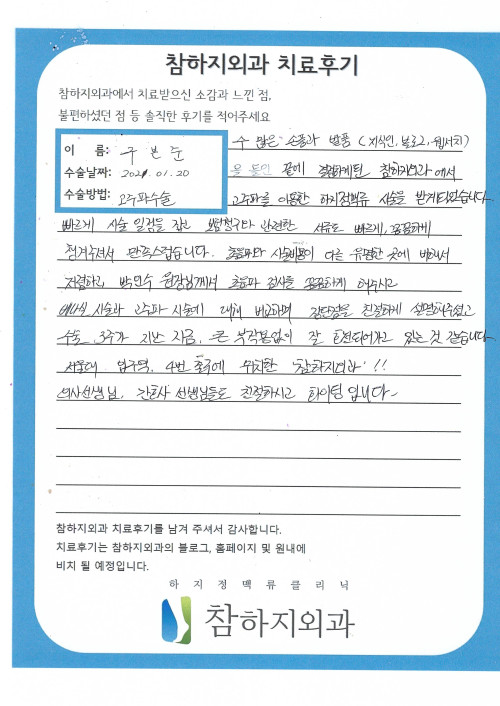 참하지외과 치료후기
참하지외과에서 치료받으신 소감과 느낀 점,
불편하셨던 점 등 솔직한 후기를 적어주세요
이 름: 구본준
수술날짜: 2021.01.20
수술방법: 고주파수술
수 많은 손품과 발품 (지식인, 블로그, 웹서치)
을 들인 끝에 접하게된 참하지외과에서
고주파를 이용한 하지정맥류 시술을 받게되었습니다.
빠르게 시술 일정을 잡고 보험청구와 관련한 서류도 빠르게, 꼼꼼하게
챙겨주셔서 만족스럽습니다. 초음파와 시술비용이 다른 유명한 곳에 비해서
저렴하고, 박인수 원장님께서 초음파 검사를 꼼꼼하게 해주시고
베나실 시술과 고주파 시술에 대해 비교하며 장단점을 친절하게 설명해주셨고
수술 3주가 지난 지금, 큰 부작용없이 잘 호전되어가고 있는 것 같습니다.
서울대 입구역, 4번 출구에 위치한 '참하지외과'!!
의사선생님, 간호사 선생님들도 친절하시고 화이팅입니다~
참하지외과 치료후기를 남겨 주셔서 감사합니다.
치료후기는 참하지외과의 블로그, 홈페이지 및 원내에
비치 될 예정입니다.
하지정맥류클리닉
참하지외과